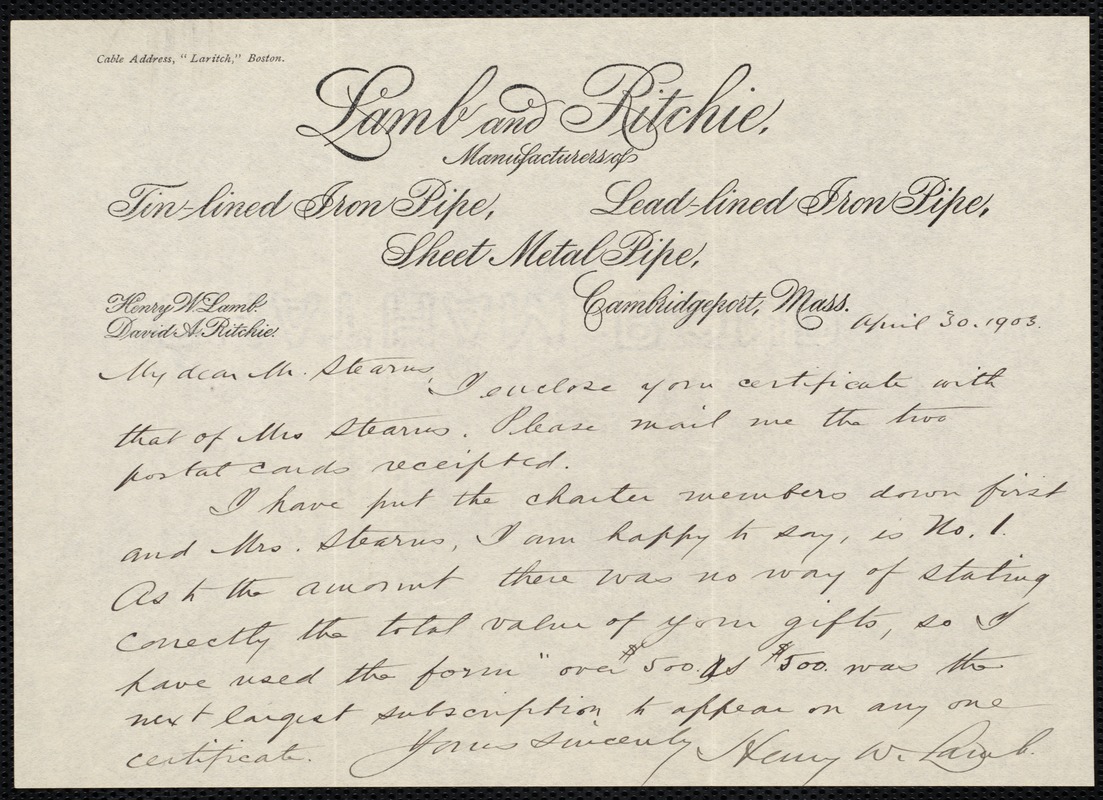 Cable Address, "Laritch," Boston.
Lamb and Ritchie,
Manufacturers of
Tin-lined Iron Pipe, Lead-lined Iron Pipe,
Sheet Metal Pipe,
Henry W. Lamb. Cambridgeport, Mass.
David A. Ritchie. April 30. 1903.
My dear Mr. Stearns,
I enclose your certificate with
that of Mrs Stearns. Please mail me the two
postal cards receipted.
I have put the charter members down first
and Mrs. Stearns, I am happy to say, is No. 1.
As to the amount there was no way of stating
correctly the total value of your gifts, so I
have used the form "over $500. As $500. was the
next largest subscription to appear on any one
certificate. Yours sincerely Henry W. Lamb.